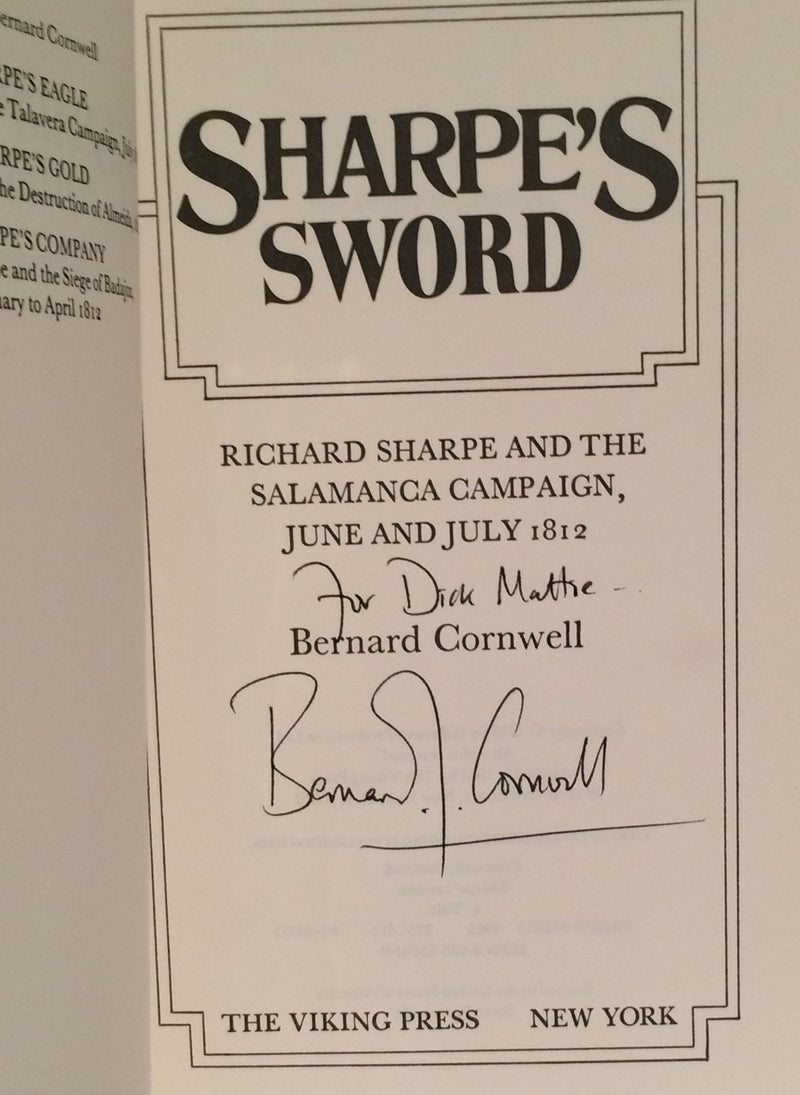 ernard Cornwell
RPE'S EAGLE
e Talavera Campaign, July
RPE'S GOLD
he Destruction of Almeida,
PE'S COMPANY
e and the Siege of Badajoz,
uary to April 1812
SHARPE'S
SWORD
RICHARD SHARPE AND THE
SALAMANCA CAMPAIGN,
JUNE AND JULY 1812
For Dick Mattie -
Bernard Cornwell
Bernard Cornwell
THE VIKING PRESS NEW YORK